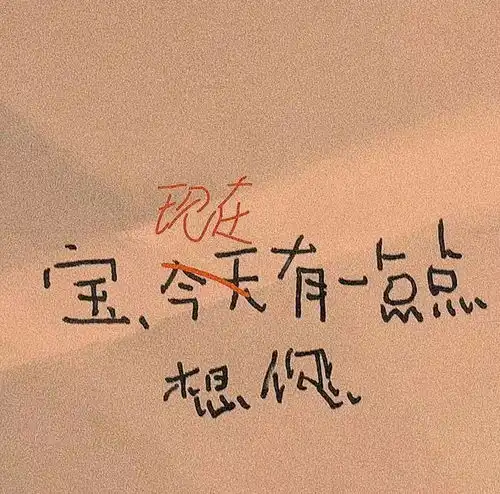 现在
宝、今天有一点点
想您